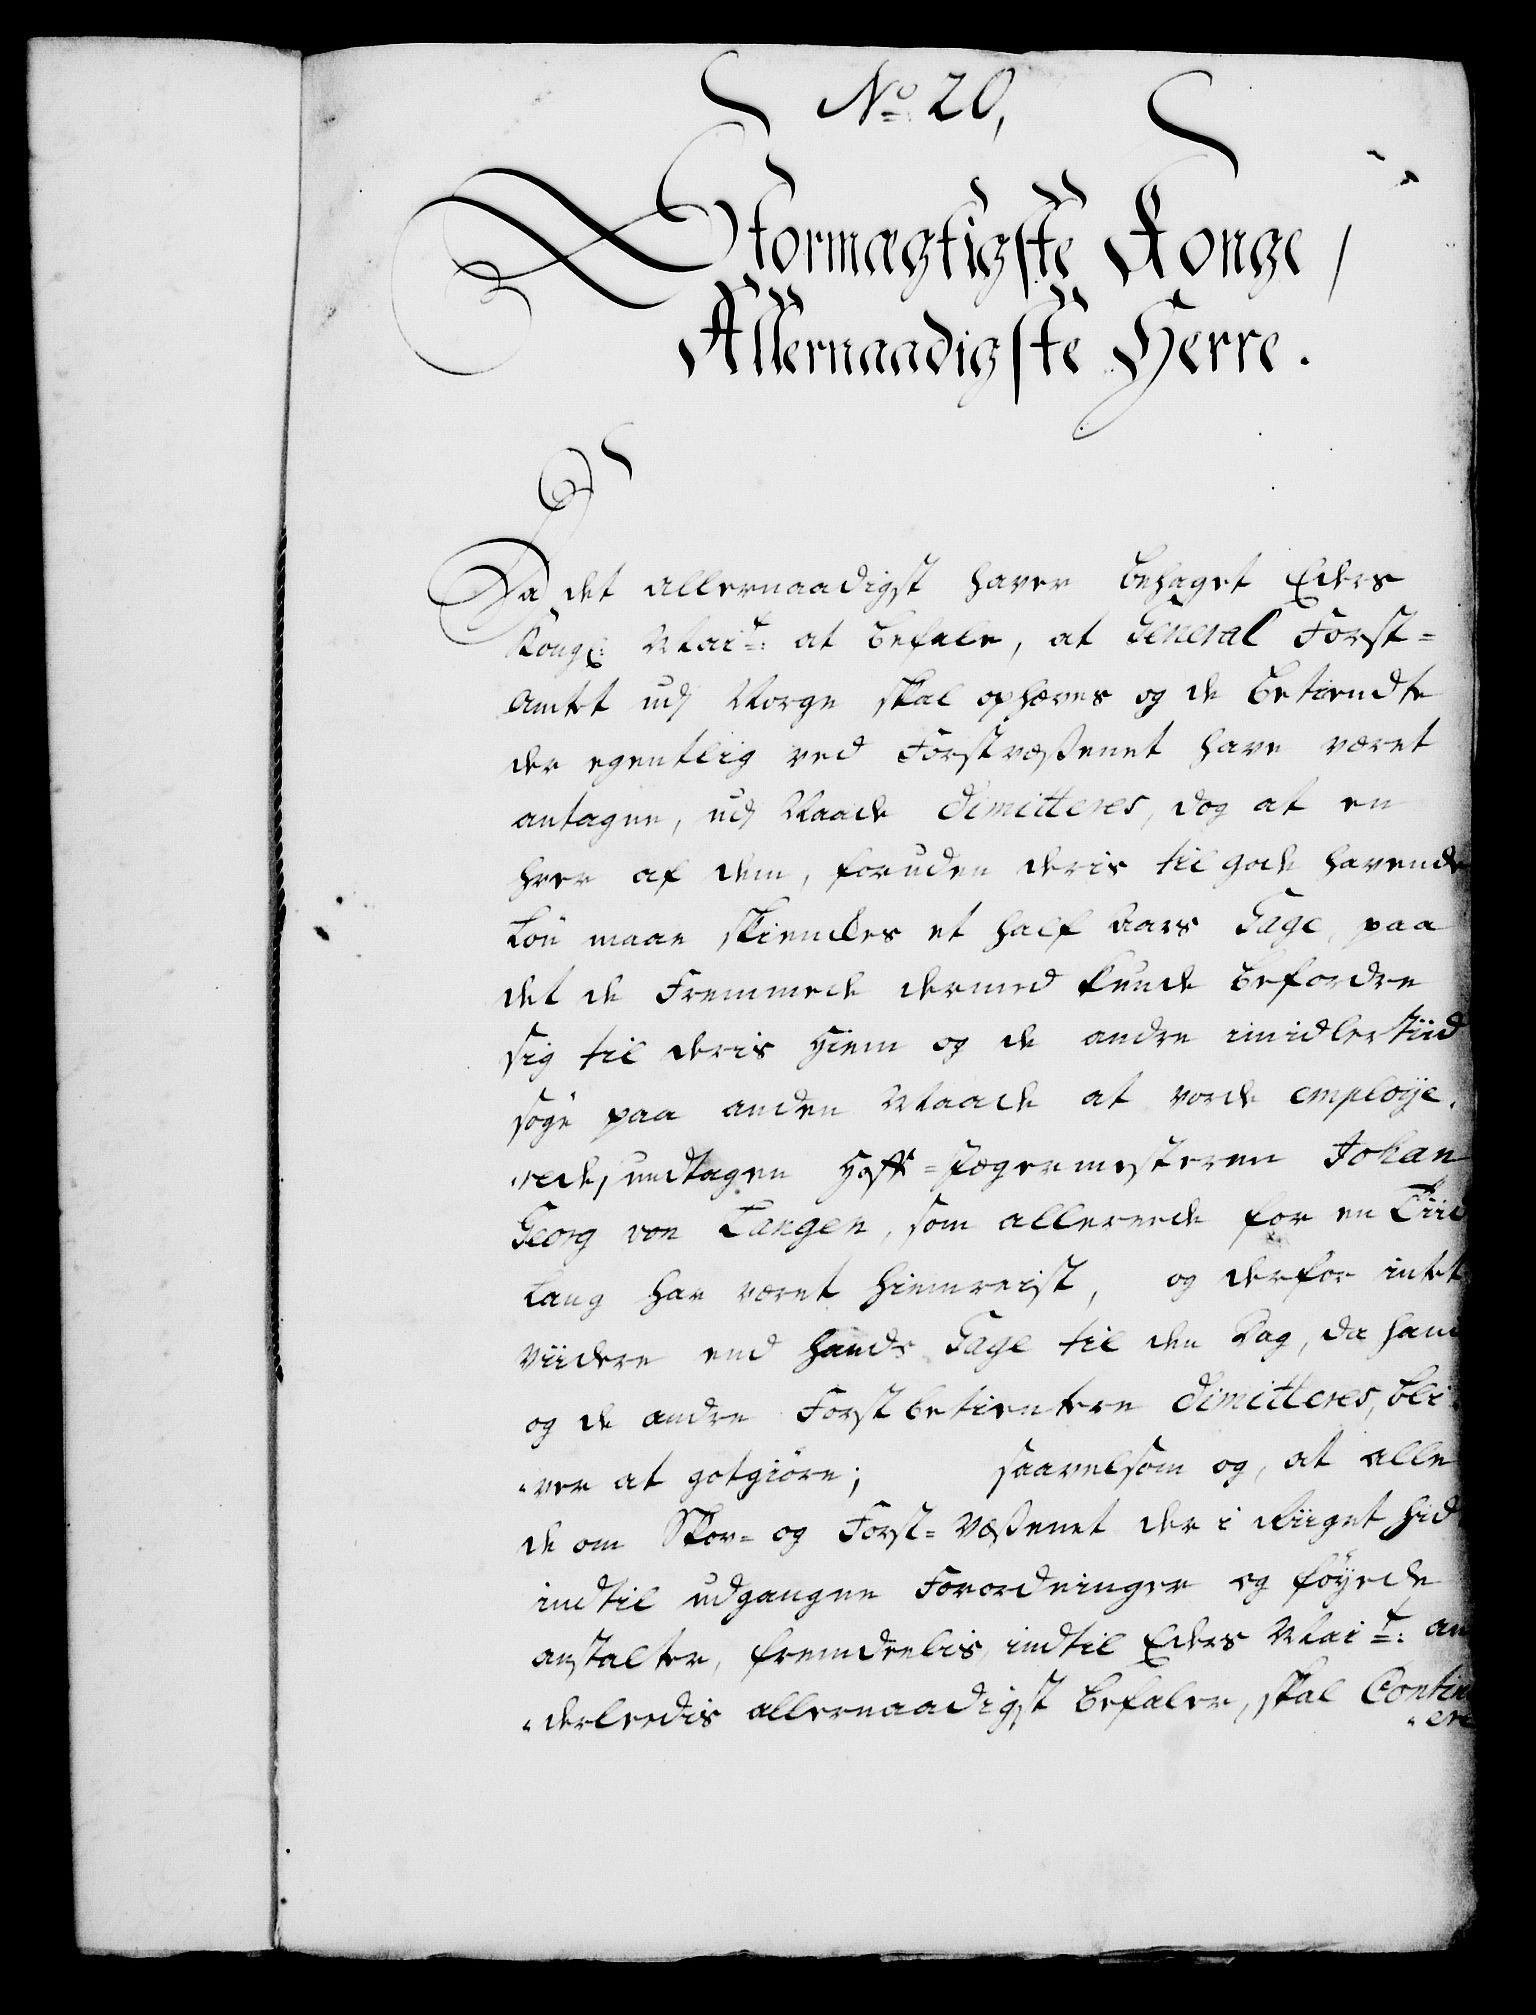 No 20,
Stormægtigste Konge,
Allernaadigste Herre.
Da det allernaadigst haver behaget Eders
Kongl: Maitt: at befale, at General Forst=
Amtet udj Norge skal ophæves og de betiendte
der egentlig ved Forstvæßenet have været
antagne, udj Naade dimitteres, dog at en
hver af dem, foruden deris til gode havende
Løn maae skienckes et half Aars Gage, paa
det de Fremmede dermed kunde befordre
sig til deris Hiem og de andre imidlertiid
søge paa anden Maade at vorde employe-
rede, undtagen Hoff=Jægermesteren Johan
Georg von Langen, som allereede for en Tiid
lang har været hiemreist, og derfor intet
viidere end hands Gage til den Dag, da hand
og de andre Forstbetientere dimitteres, bli-
ver at gotgiøre; saavelsom og, at alle
de om Skov= og Forst=Væßenet der i Riiget hid
indtil udgangne Forordninger og føyede
anstalter, fremdeelis, indtil Eders Mait: an
derleedis allernaadigst befaler, skal Contin
ere